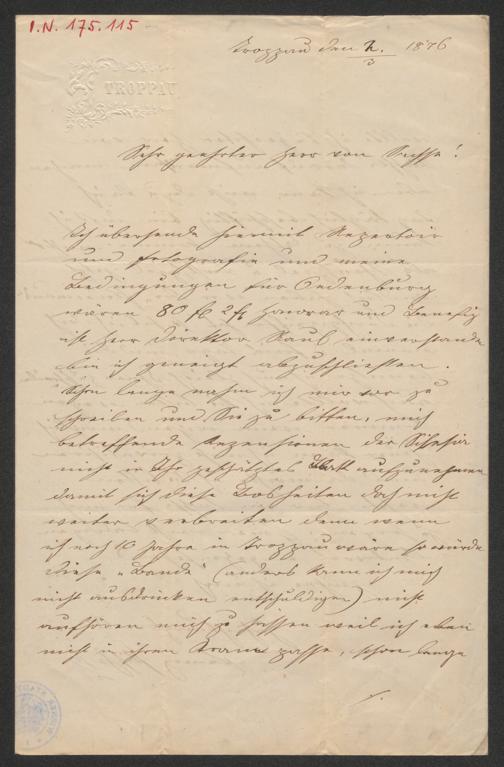 I.N. 175.115
TROPPAU
Troppau den 2./3 1876
Sehr geehrter Herr von Sachse!
Ich übersende hiermit Repertoir
und Fotografie und meine
Bedingungen für Oedenburg
wären 80 fl 2 fl Honorar und Benefiz
ist Herr Direktor Raul einverstanden
bin ich geneigt abzuschließen.
Schon lange nahm ich mir vor zu
schreiben und Sie zu bitten, mich
betreffende Rezensionen der Silesia
nicht in Ihr geschätztes Blatt aufzunehmen
damit sich diese Bosheiten doch nicht
weiter verbreiten denn wenn
ich noch 10 Jahre in Troppau wäre so würde
diese "Bande" (anders kann ich mich
nicht ausdrücken entschuldigen) nicht
aufhören mich zu hassen weil ich eben
nicht in ihren Kram passe, schon lange